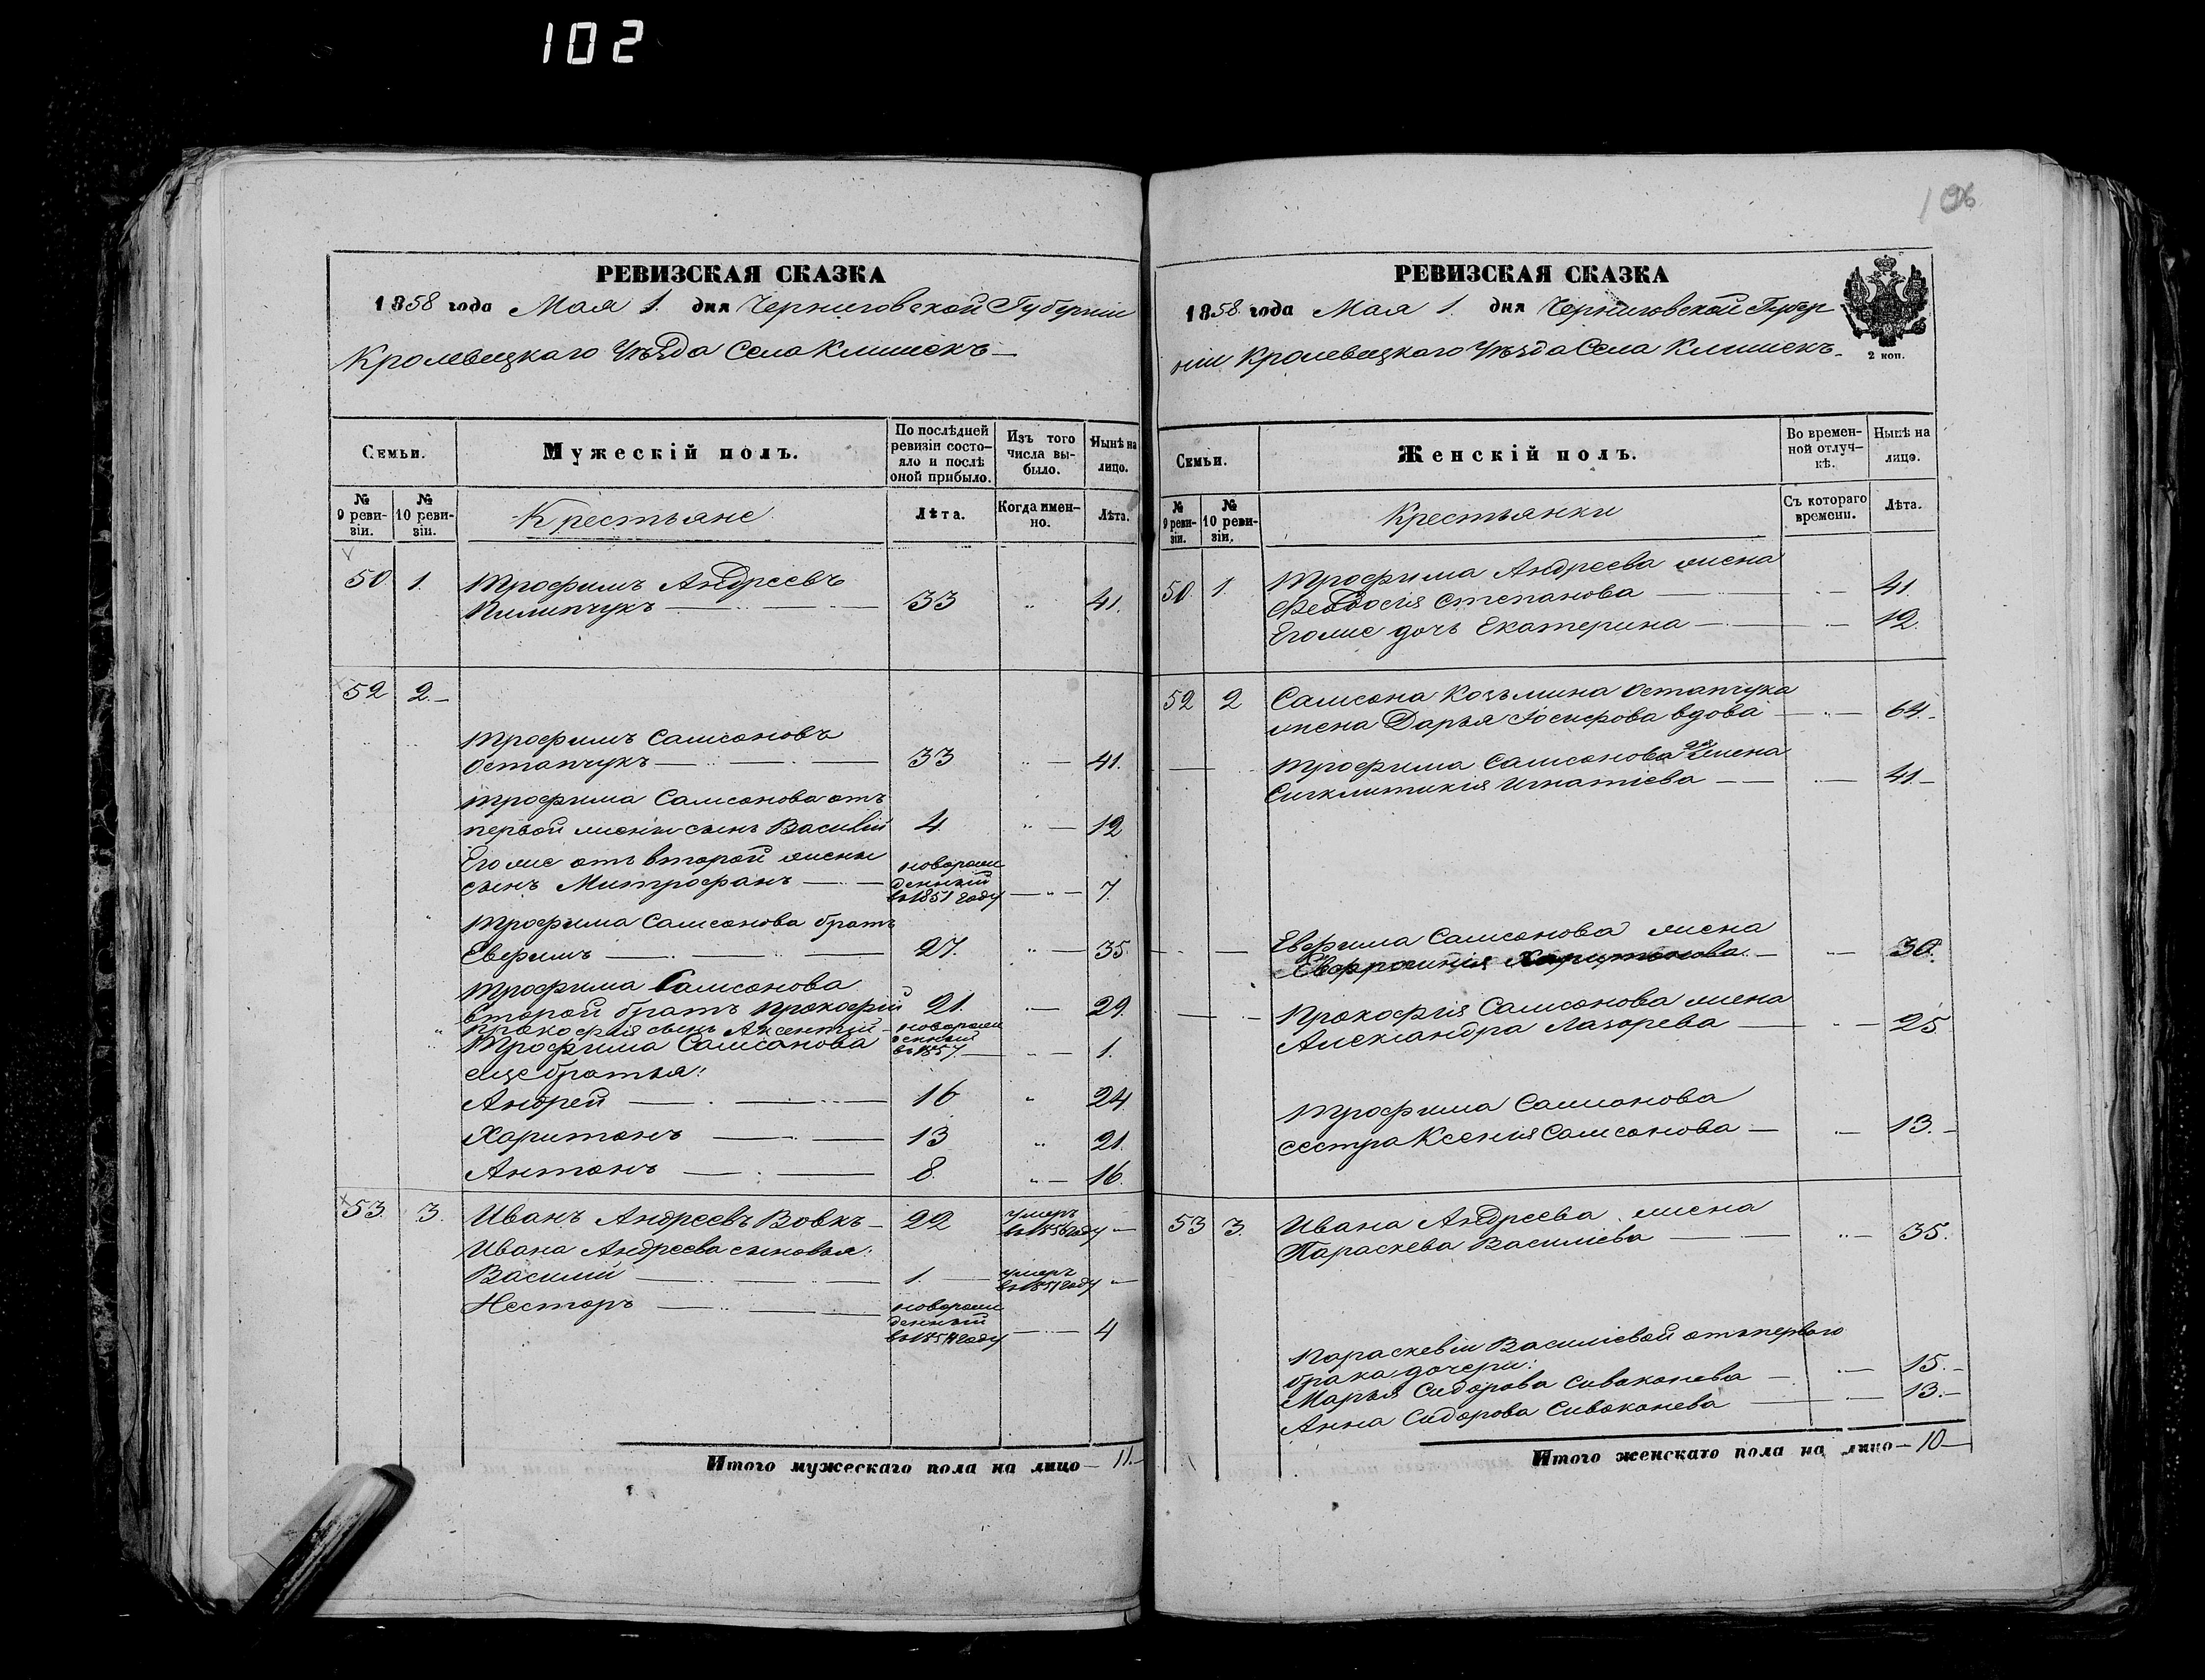 102
106
РЕВИЗСКАЯ СКАЗКА
1858 года Мая 1. дня Черниговской Губерніи
Кролевецкаго Уѣзда Села Клишекъ
Семьи.
Мужескій полъ.
По послѣдней ревизіи состояло и послѣ оной прибыло.
Изъ того числа выбыло.
Нынѣ на лицо.
№ 9 ревизіи.
№ 10 ревизіи.
Крестьяне
Лѣта.
Когда именно.
Лѣта.
50 1. Трофимъ Андреевъ
Пилипчукъ 33 " 41.
52 2.
Трофимъ Самсоновъ
Остапчукъ 33 " 41.
Трофима Самсонова отъ
первой жены сынъ Василій 4. " 12
Егоже отъ второй жены
сынъ Митрофанъ новорожденный въ 1851 году " 7.
Трофима Самсонова братъ
Евфимъ 27. " 35.
Трофима Самсонова
второй братъ Прокофій 21. " 29.
Прокофія сынъ Аксентій новорожденный въ 1857 " 1.
Трофима Самсонова
еще братья:
Андрей 16 " 24
Харитонъ 13 " 21.
Антонъ 8. " 16.
53. 3. Иванъ Андреевъ Вовкъ 22 умеръ въ 1856 году
Ивана Андреева сыновья:
Василій 1. умеръ въ 1851 году
Несторъ новорожденный въ 1854 году 4
Итого мужескаго пола на лицо 11.
РЕВИЗСКАЯ СКАЗКА
1858. года Мая 1. дня Черниговской Губер
ніи Кролевецкаго Уѣзда Села Клишекъ.
2 коп.
Семьи.
Женскій полъ.
Во временной отлучкѣ.
Нынѣ на лицо.
№ 9 ревизіи.
№ 10 ревизіи.
Крестьянки
Съ котораго времени.
Лѣта.
50. 1. Трофима Андреева жена
Феодосія Степанова " 41.
Егоже дочь Екатерина " 12.
52 2 Самсона Козьмина Остапчука
жена Дарья Іосифова вдова " 64.
Трофима Самсонова 2я жена
Сигклитикія Игнатіева " 41.
Евфима Самсонова жена
Евфросинія Харитонова " 30.
Прокофія Самсонова жена
Александра Лазорева " 25
Трофима Самсонова
сестра Ксенія Самсонова " 13.
53 3. Ивана Андреева жена
Параскева Василіева " 35.
Параскевіи Василіевой отъ перваго
брака дочери:
Марья Сидорова Сивоконева " 15.
Анна Сидорова Сивоконева " 13.
Итого женскаго пола на лицо 10